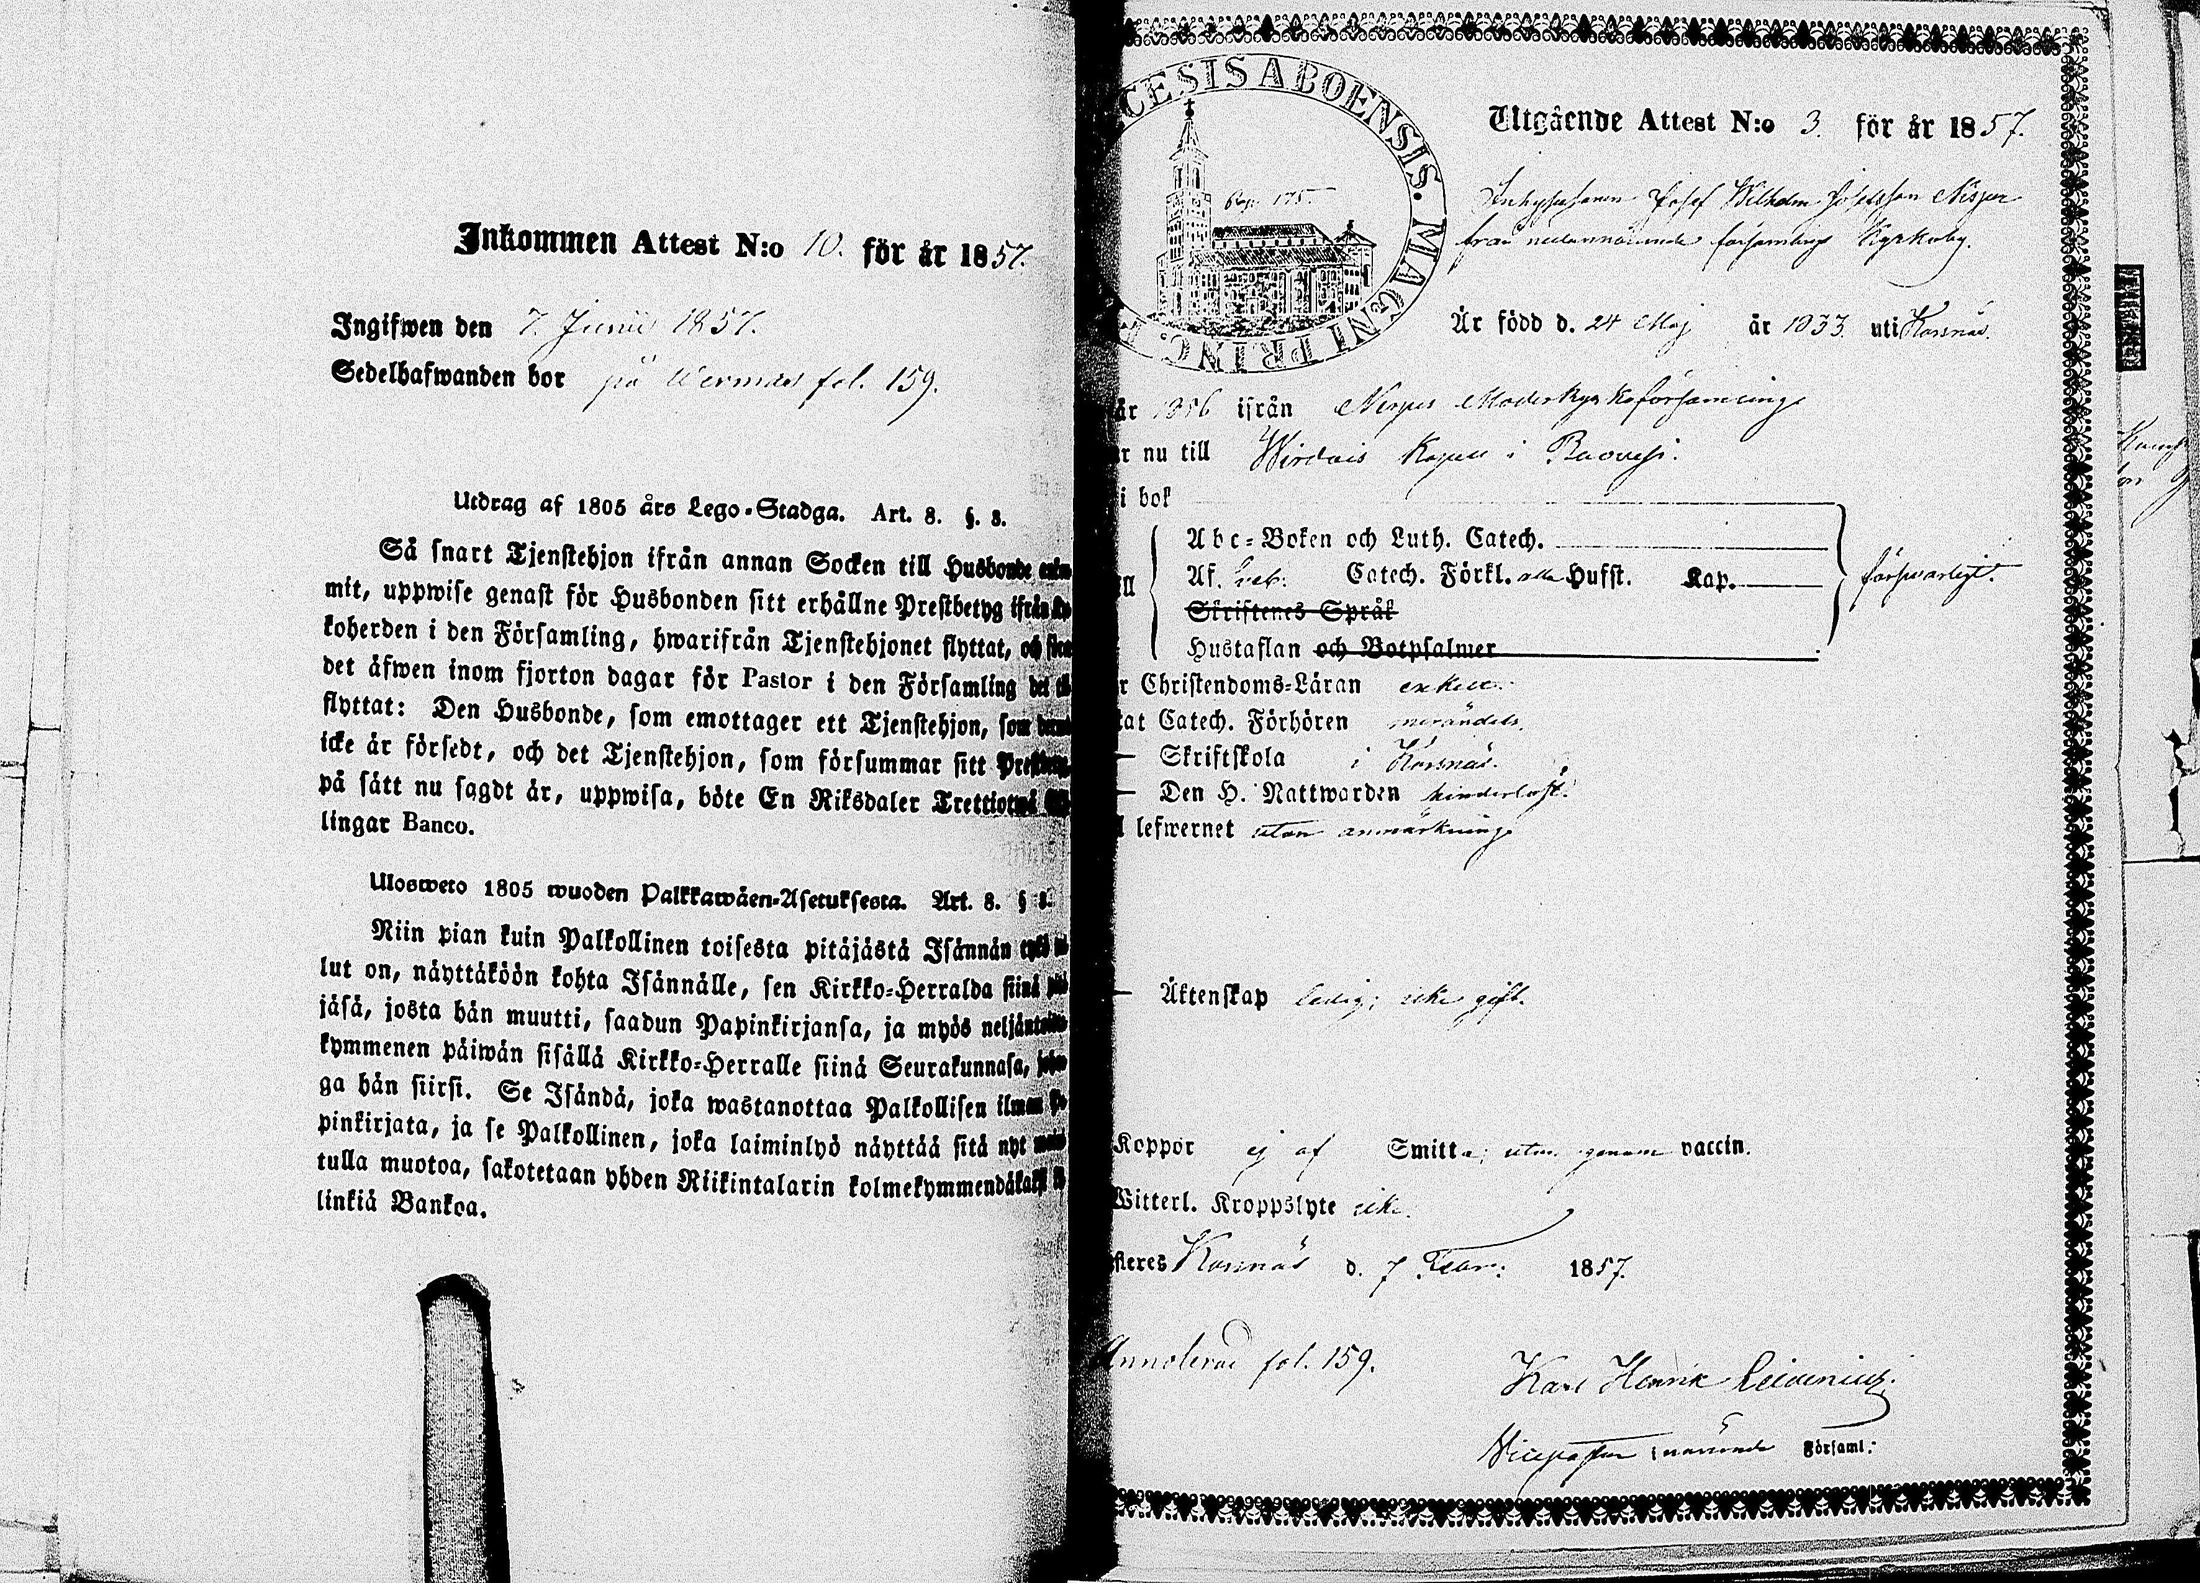 Inkommen Attest N:o 10. för år 1857.
Ingifwen den 7. Junii 1857.
Sedelhafwanden bor på Wermäs fol. 159.
Utdrag af 1805 års Lego-Stadga. Art. 8. §. 3.
Så snart Tjenstehjon ifrån annan Socken till Husbonde
mit, uppwise genast för Husbonden sitt erhållne Prestbetyg ifrån
koherden i den Församling, hwarifrån Tjenstehjonet flyttat, och
det äfwen inom fjorton dagar för Pastor i den Församling det
flyttat: Den Husbonde, som emottager ett Tjenstehjon, som
icke är försedt, och det Tjenstehjon, som försummar sitt
på sätt nu sagdt är, uppwisa, böte En Riksdaler Trettiotwå
lingar Banco.
Ulosweto 1805 wuoden Palkkawäen-Asetuksesta. Art. 8. §
Niin pian kuin Palkollinen toisesta pitäjästä Isännän
lut on, näyttäköön kohta Isännälle, sen Kirkko-Herralda siinä
jäsä, josta hän muutti, saadun Papinkirjansa, ja myös
kymmenen päiwän sisällä Kirkko-Herralle siinä Seurakunnasa,
ga hän siirsi. Se Isändä, joka wastanottaa Palkollisen ilman
pinkirjata, ja se Palkollinen, joka laiminlyö näyttää sitä nyt
tulla muotoa, sakotetaan yhden Riikintalarin
linkiä Bankoa.
CESIS ABOENSIS. MAGNI PRINC.
Pag. 175.
Utgående Attest N:o 3. för år 1857.
Josef Wilhelm Josefsson
från nedannämnde församlings Kyrkoby.
Är född d. 24 Maj år 1833. uti Korsnäs.
år 1856 ifrån Moderkyrkoförsamling
r nu till Wirdois Kapell i Ruovesi.
i bok
Abc-Boken och Luth. Catech.
Af. Catech. Förkl. alla Hufst. Kap. försvarligt.
Skriftenes Språk
Hustaflan och Botpsalmer
r Christendoms-Läran enkelt.
tat Catech. Förhören
— Skriftskola i Korsnäs.
— Den H. Nattwarden hinderlöst.
l lefwernet utan anmärkning.
— Äktenskap ledig; icke gift.
Koppor ej af Smitta; utan genom vaccin.
Witterl. Kroppslyte icke.
steres Korsnäs d. 7 Febr: 1857.
Annoterad fol. 159.
Karl Henrik
Vicepastor i nämnde Församl: